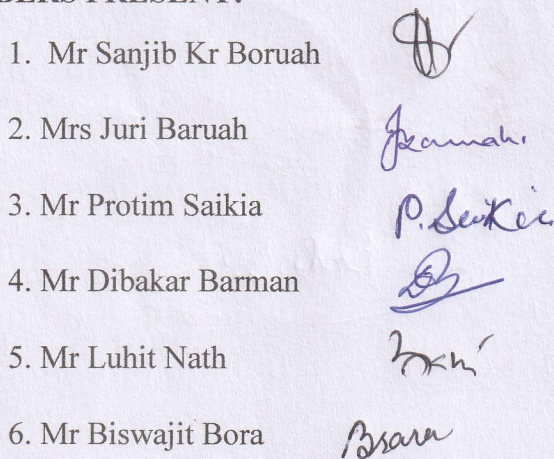 PRESENT:
1. Mr Sanjib Kr Boruah
2. Mrs Juri Baruah
3. Mr Protim Saikia P. Saikia
4. Mr Dibakar Barman
5. Mr Luhit Nath
6. Mr Biswajit Bora